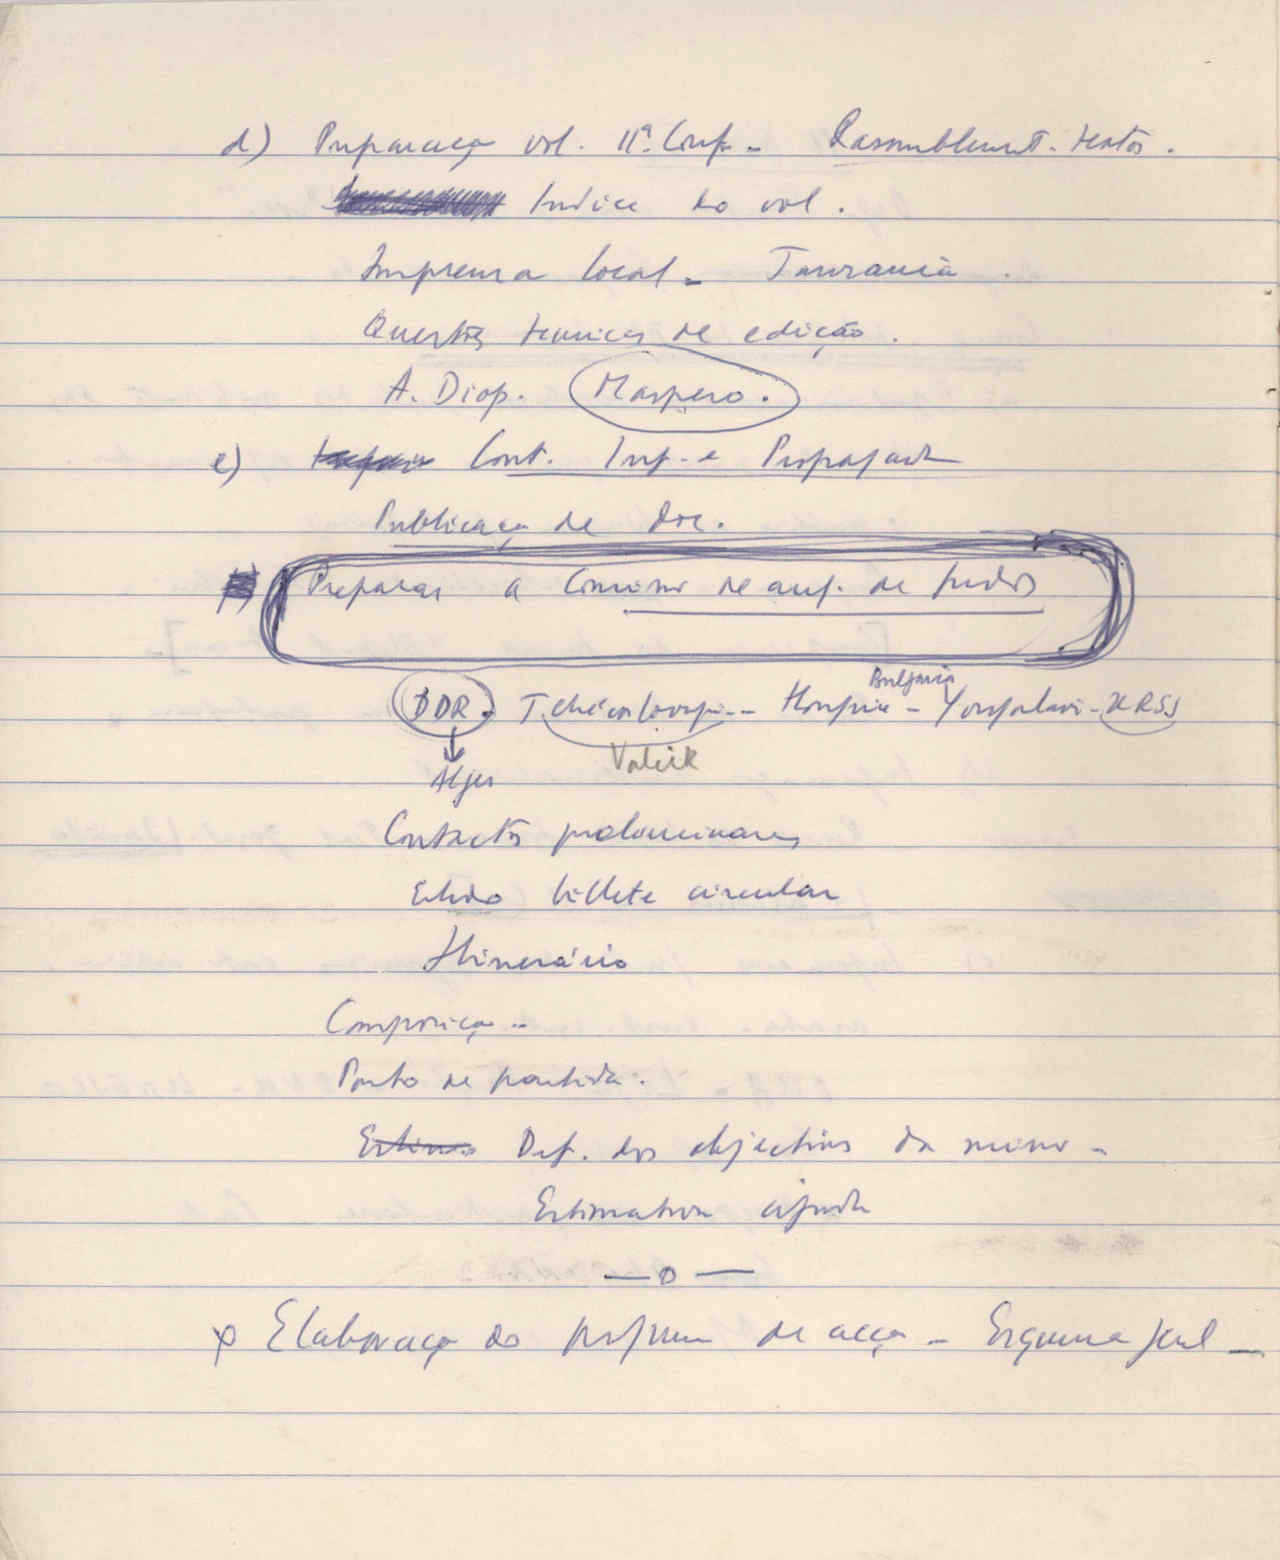 d) Preparação vol. IIª Conf. - Rassemblement. textos.
Indice do vol.
Imprensa local - Tanzania.
Questões tecnicas de edição.
A. Diop. Maspero.
e) Cont. Inf. e Propaganda
Publicação de doc.
Preparar a Comissão de de fundos
Bulgaria
DDR. Tchécoslovaqui - Hongrie - Yougoslavi - URSS
Valeik
Alger
Contactos preliminares
Estudo billete circular
Itinerário
Composição -
Ponto de partida.
Def. dos objectivos da missão -
Estimation ajuda
— o —
Elaboração do programa de acção - Esquema geral -